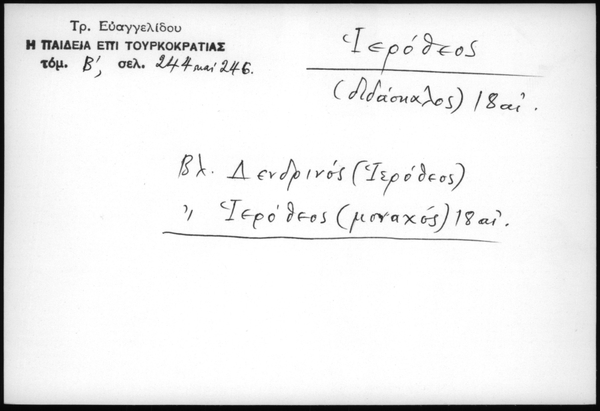 Τρ. Εὐαγγελίδου
Η ΠΑΙΔΕΙΑ ΕΠΙ ΤΟΥΡΚΟΚΡΑΤΙΑΣ
τόμ. Β', σελ. 244 καὶ 246.
Ἱερόθεος
(διδάσκαλος) 18 αἰ.
Βλ. Δενδρινός (Ἱερόθεος)
" Ἱερόθεος (μοναχός) 18 αἰ.